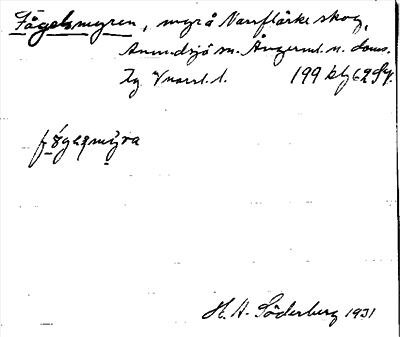 Fågelsmyren, myr å Vanfläcke skog,
Anundsjö sn. Ångerml. n. doms.
Tg Vnorrl. l. 199 bly 62 Sy.
fógeļsmỳra
H. A. Söderberg 1931